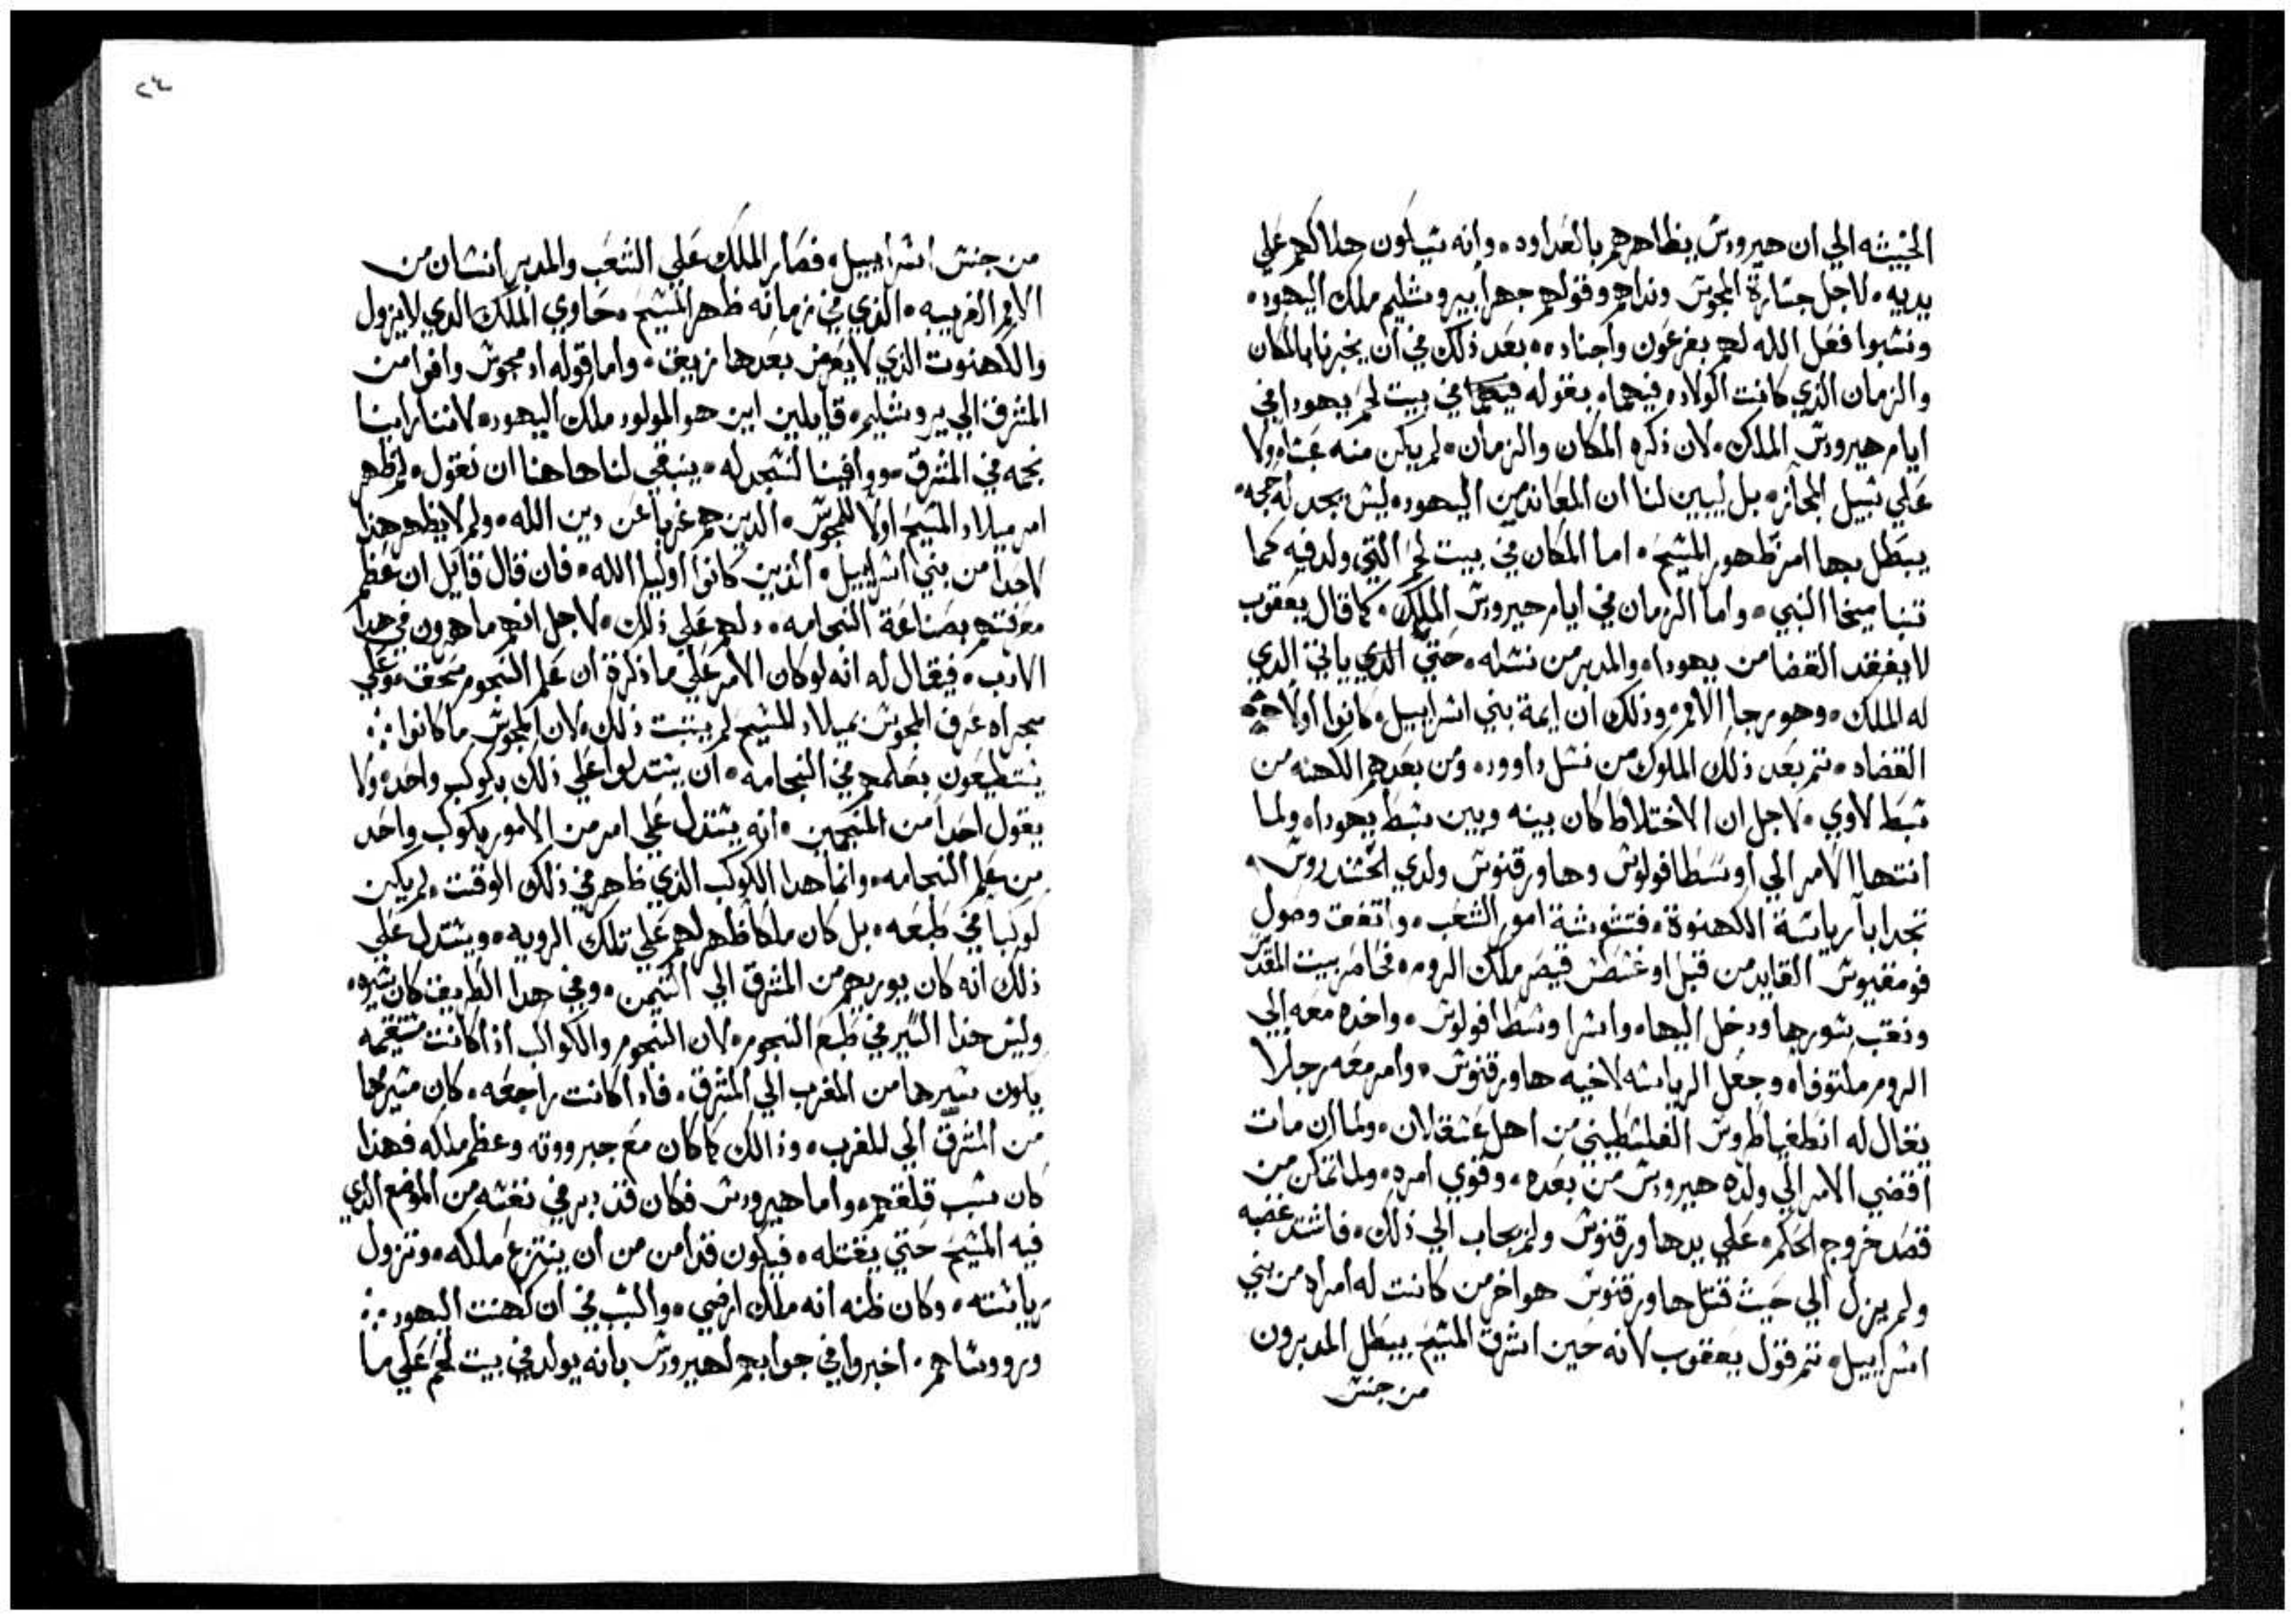 الخبيثه الي ان هيرودس يظاهرهم بالعداوه۰ وانه سيكون هلاكهم علي
يديه۰ لاجل جسارة المجوس ونداهم وقولهم جهرا بيروشليم ملك اليهود۰
ونسبوا فعل الله لهم بفرعون واجناده۰ بعد ذلك في ان يخبرنا بالمكان
والزمان الذي كانت الولاده فيهما۰ بقوله في بيت لحم يهودا في
ايام هيرودس الملك۰ لان ذكره المكان والزمان۰ لم يكن منه عبثا ولا
علي سبيل المجاز۰ بل ليبين لنا ان المعاندين اليهود۰ ليس يجد له حجه۰
يبطل بها امر ظهور المسيح۰ اما المكان في بيت لحم التي ولد فيه كما
تنبا ميخا النبي۰ واما الزمان في ايام هيرودس الملك۰ كما قال يعقوب
لا يفقد القضا من يهودا۰ والمدبر من نسله۰ حتي الذي ياتي الذي
له الملك۰ وهو رجا الامم۰ وذلك ان ايمة بني اسراييل۰ كانوا اولا
القضاه۰ تم بعد ذلك الملوك من نسل داوود۰ ومن بعدهم الكهنه من
سبط لاوي۰ لاجل ان الاختلاط كان بينه وبين سبط يهودا۰ ولما
انتها الامر الي اوسطافولوس وهاورقنوس ولدي الخسندروس۰
تجدابا رياسة الكهنوة۰ فتشوشة امور الشعب۰ واتفق وصول
فومفيوس القايد من قبل اوغسطس قيصر ملك الروم۰ فحاصر بيت المقدس
ونقب سورها ودخل اليها۰ واسرا وسطافولوس۰ واخده معه الي
الروم مكتوفا۰ وجعل الرياسه لاخيه هاورقنوس۰ وامر معه رجلا
يقال له انطفياطروس الفلسطيني من اهل عسقلان۰ ولما ان مات
افضي الامر الي ولده هيرودس من بعده۰ وقوي امره۰ ولما تمكن من
قصد خروج الحكم۰ علي يد هاورقنوس ولم يجاب الي ذلك۰ فاشتد غضبه
ولم يزل الي حيث قتل هاورقنوس هو اخر من كانت له امراه من بني
اسراييل۰ تم قول يعقوب لانه حين اشرق المسيح يبطل المدبرون
من جنس
٢٤
من جنس اسراييل۰ فصار الملك علي الشعب والمدبر انسان من
الامم الغريبه۰ الذي في زمانه ظهر المسيح۰ حاوي الملك الذي لا يزول
والكهنوت الذي لا يعرض بعدها زيغ۰ واما قوله اد مجوس وافوا من
المشرق الي يروشليم۰ قايلين اين هو المولود ملك اليهود۰ لاننا راينا
نجمه في المشرق۰ ووافينا لنسجد له۰ ينبغي لنا هاهنا ان نقول۰ لم ظهر
امر ميلاد المسيح اولا للمجوس۰ الدين هم غربا عن دين الله۰ ولم لا يظهر هذا
لاحدا من بني اسراييل۰ الذين كانوا اوليا الله۰ فان قال قايل ان عظم
معرفتهم بصناعة النجامه۰ دلهم علي ذلك۰ لاجل انهم ماهرون في هدا
الادب۰ فيقال له انه لو كان الامر علي ما ذكرة ان علم النجوم
مجراه عرف المجوس بميلاد المسيح لم يتبت ذلك۰ لان المجوس ما كانوا ⁘
يستطيعون بعلمهم في النجامه۰ ان يستدلوا علي ذلك بكوكب واحد۰ ولا
يقول احدا من المنجمين۰ انه يستدل علي امر من الامور بكوكب واحد
من علم النجامه۰ وانما هدا الكوكب الذي ظاهر في ذلك الوقت۰ لم يكن
كوكبا في طبعه۰ بل كان ملكا ظهر لهم علي تلك الرويه۰ ويستدل علي
ذلك انه كان يوريهم من المشرق الي التيمن۰ وفي هدا الطريق كان سيره۰
وليس هذا السير في طبع النجوم۰ لان النجوم والكواكب اذا كانت مستقيمه
يكون سيرها من المغرب الي المشرق۰ فادا كانت راجعه۰ كان مسيرها
من المشرق الي المغرب۰ وذالك كان مع جبرووته وعظم ملكه فهذا
كان سبب قلقهم۰ واما هيرودس فكان قد دبر في نفسه من الموضع الذي
فيه المسيح حتي يقتله۰ فيكون قد امن من ان ينتزع ملكه۰ وتزول
رياسته۰ وكان ظنه انه ملك ارضي۰ والسبب في ان كهنت اليهود ⁘
وروساهم۰ اخبروا في جوابهم لهيرودس بانه يولد في بيت لحم علي ما